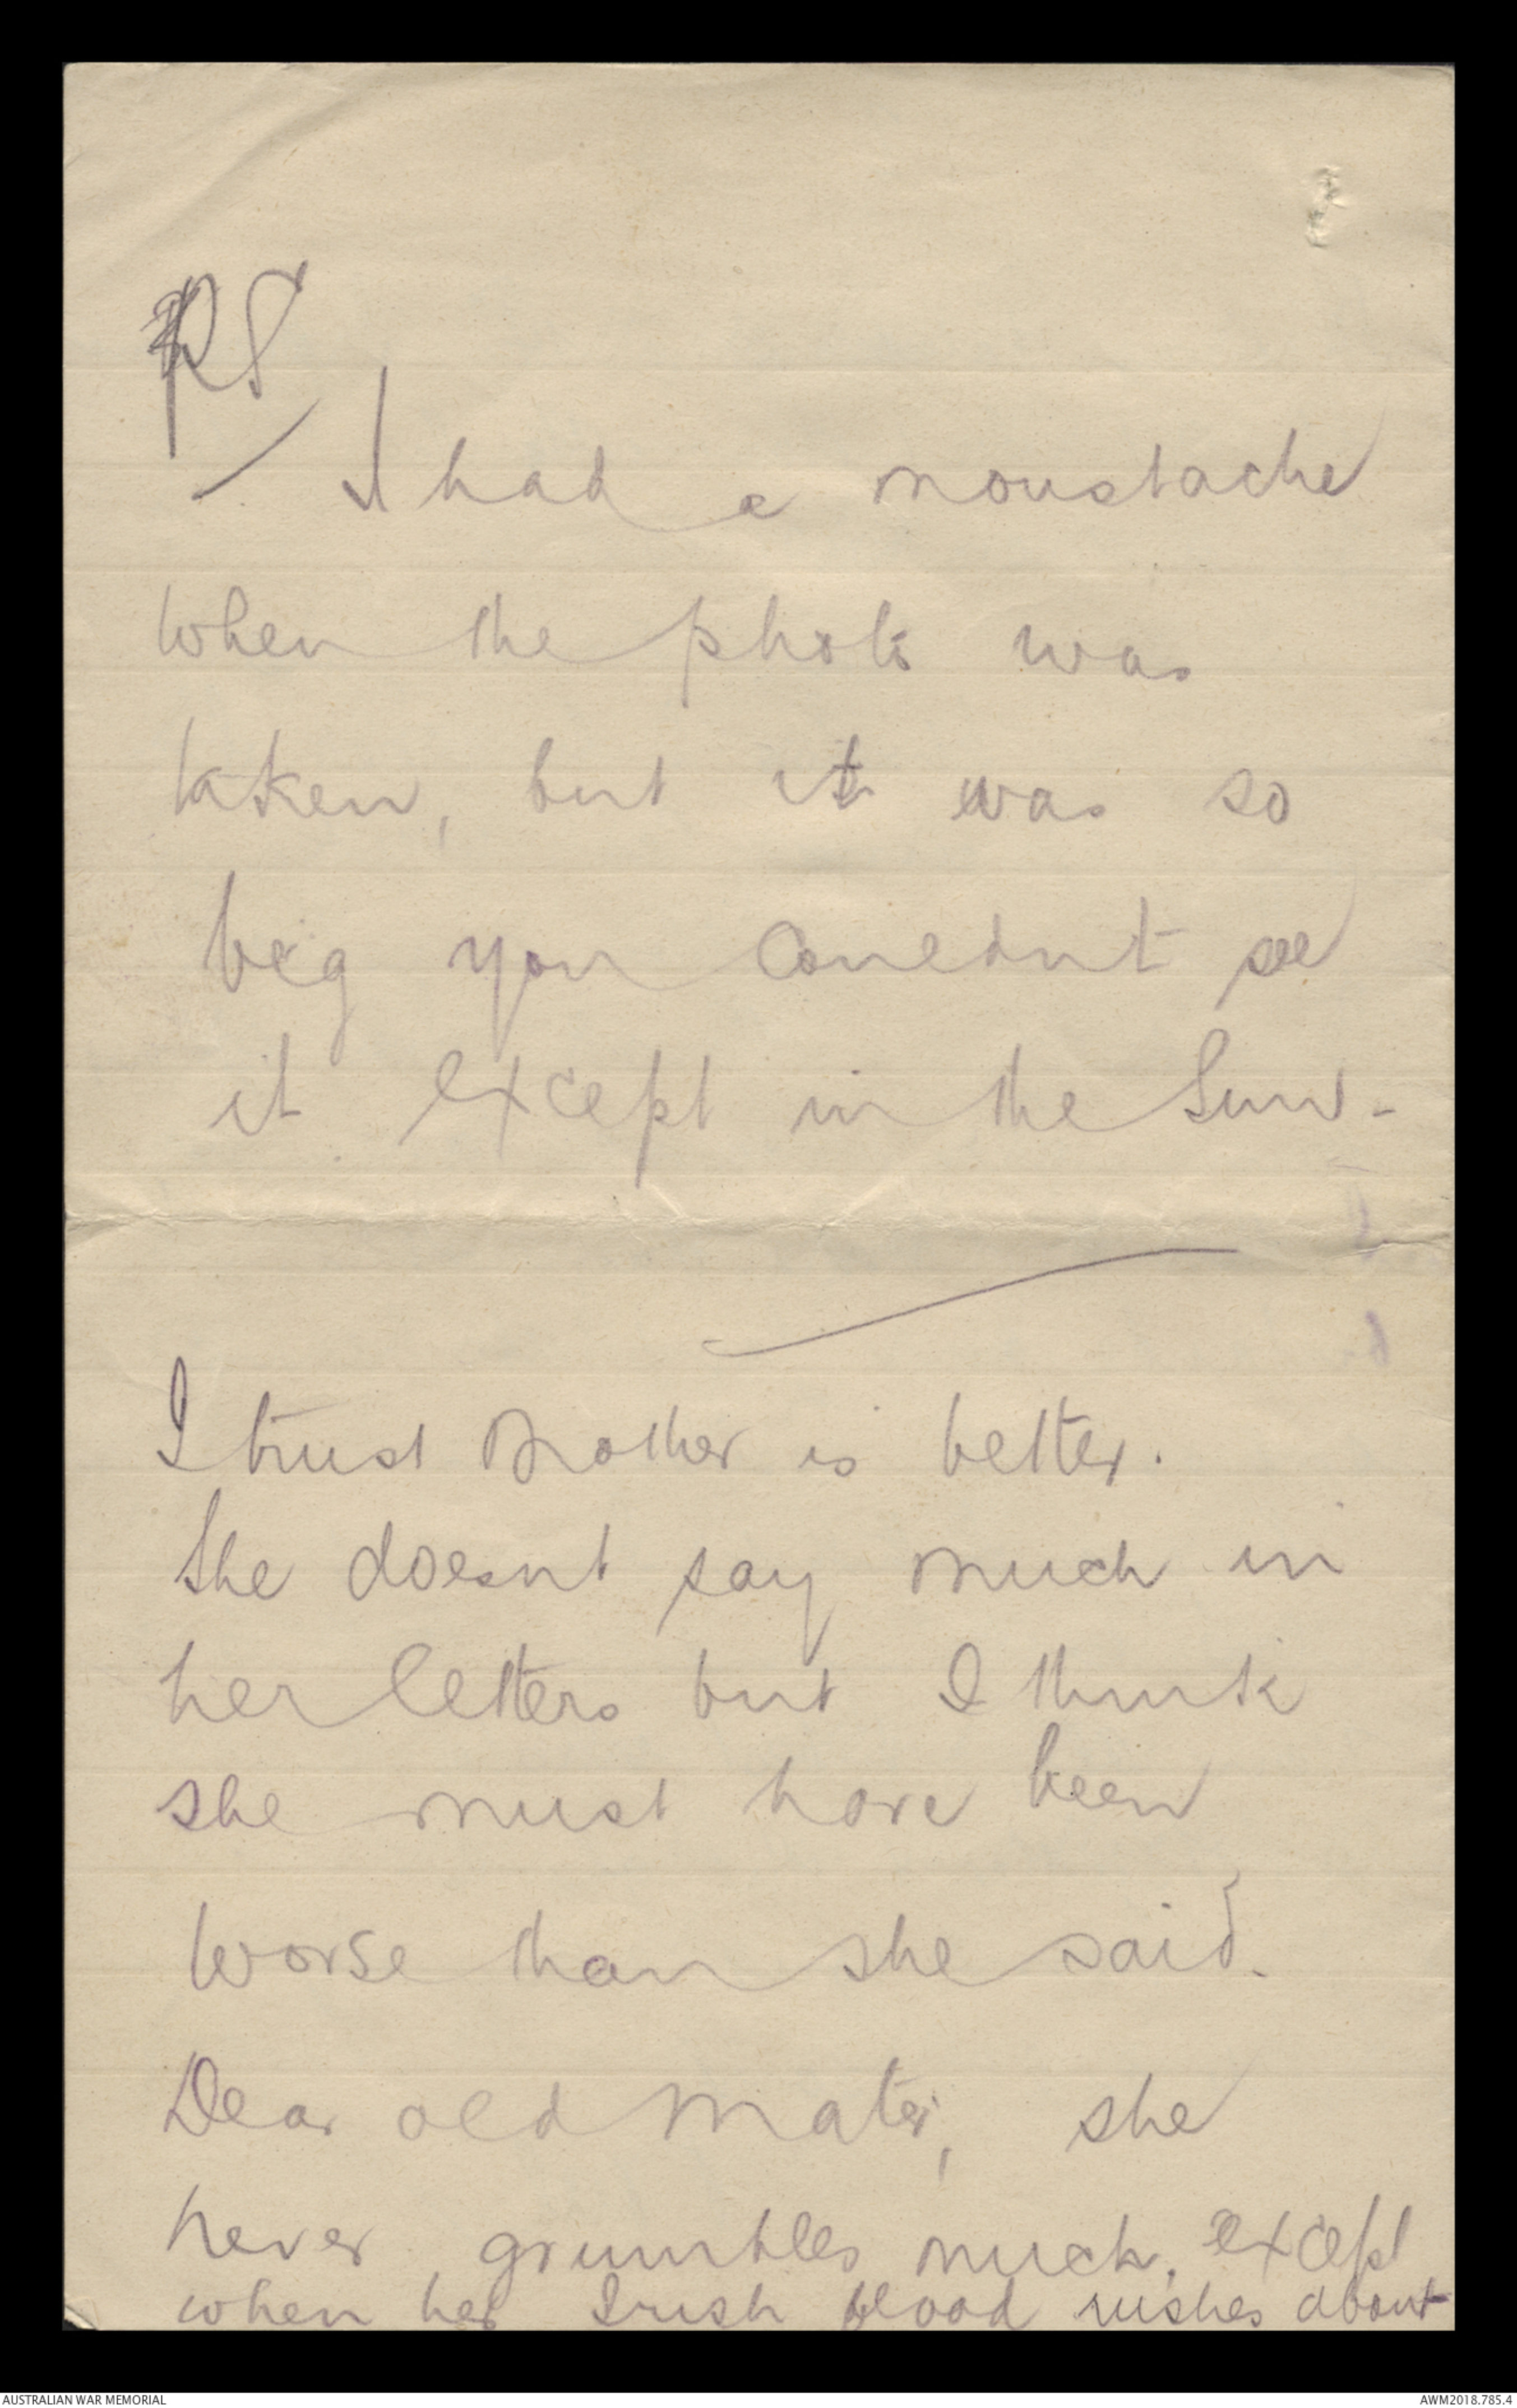 PS
I had a moustache
when the photo was
taken, but it was so
big you couldnt see
it except in the Sun-
I trust Mother is better.
She doesnt say much in
her letters but I think
she must have been
worse than she said.
Dear old Mater, she
never grumbles much, except
when her Irish blood rushes about
AUSTRALIAN WAR MEMORIAL
AWM2018.785.4